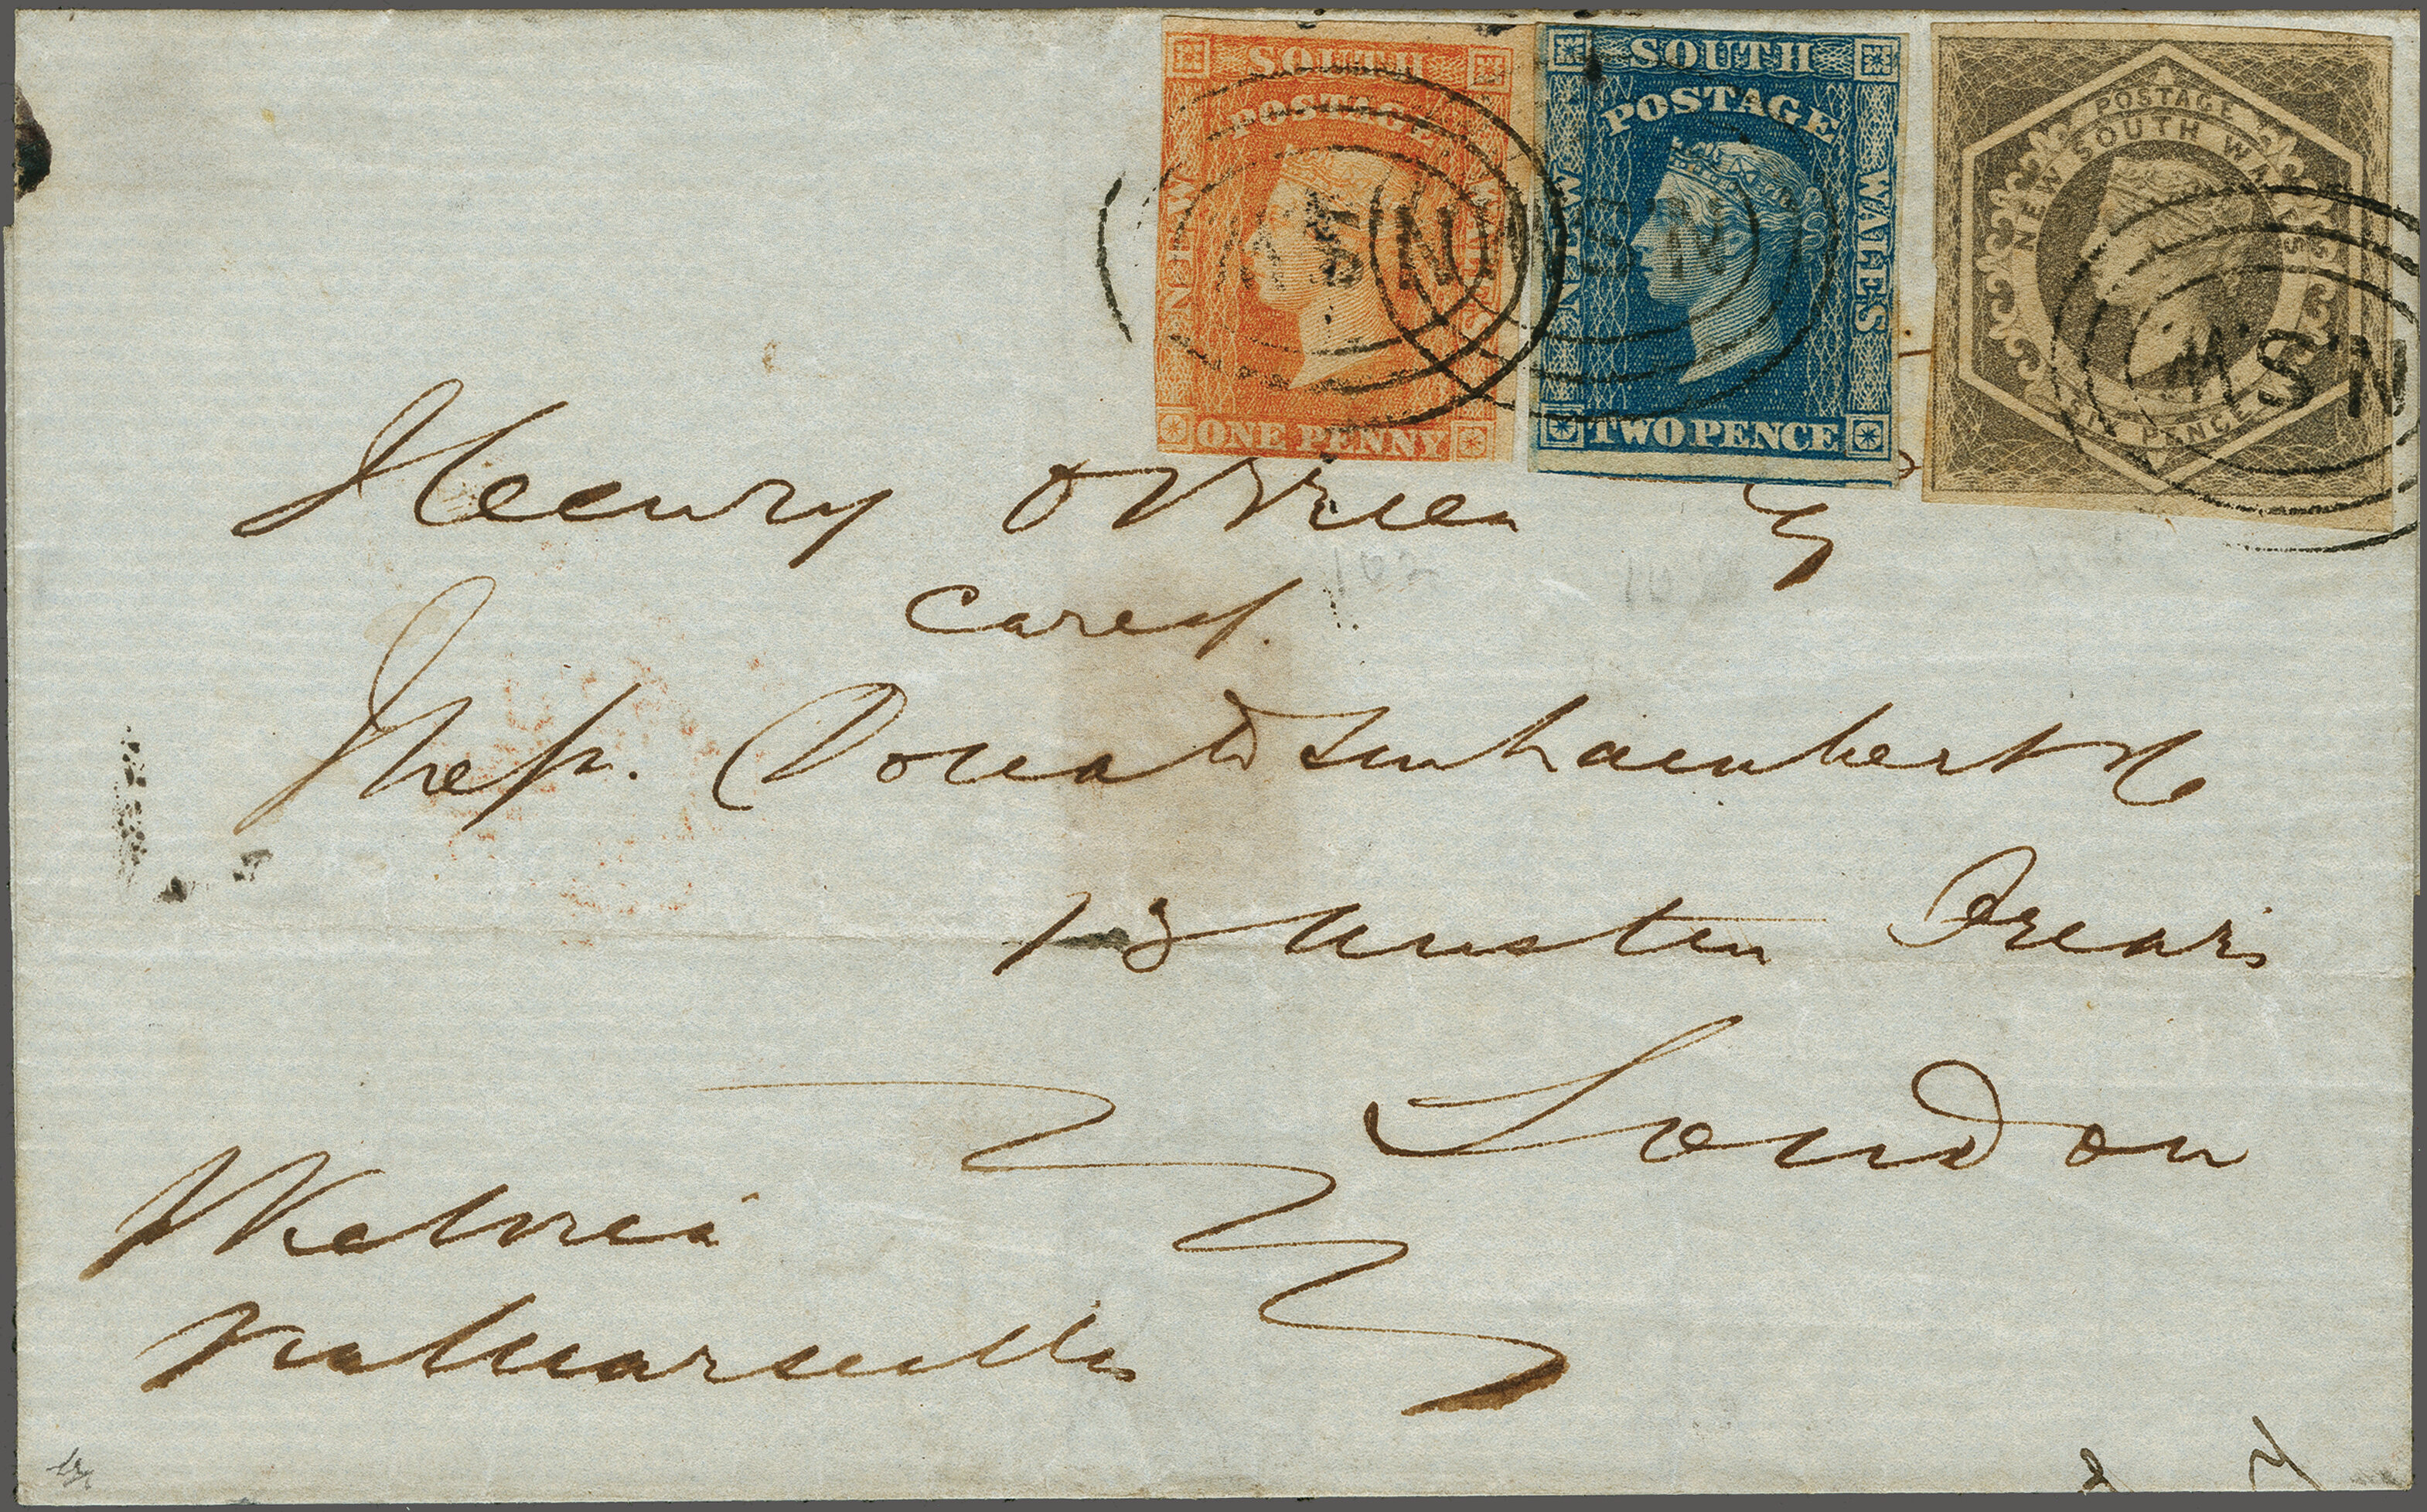 SOUTH
POSTAGE
NEW
WALES
ONE PENNY
SOUTH
POSTAGE
NEW
WALES
TWO PENCE
POSTAGE
NEW SOUTH WALES
SIX PENCE
NSW
NSW
N.S.W
Henry O'Brien
Care of
Messrs. Donaldson Lambert & Co
Austin Friars
London
Via Marseilles